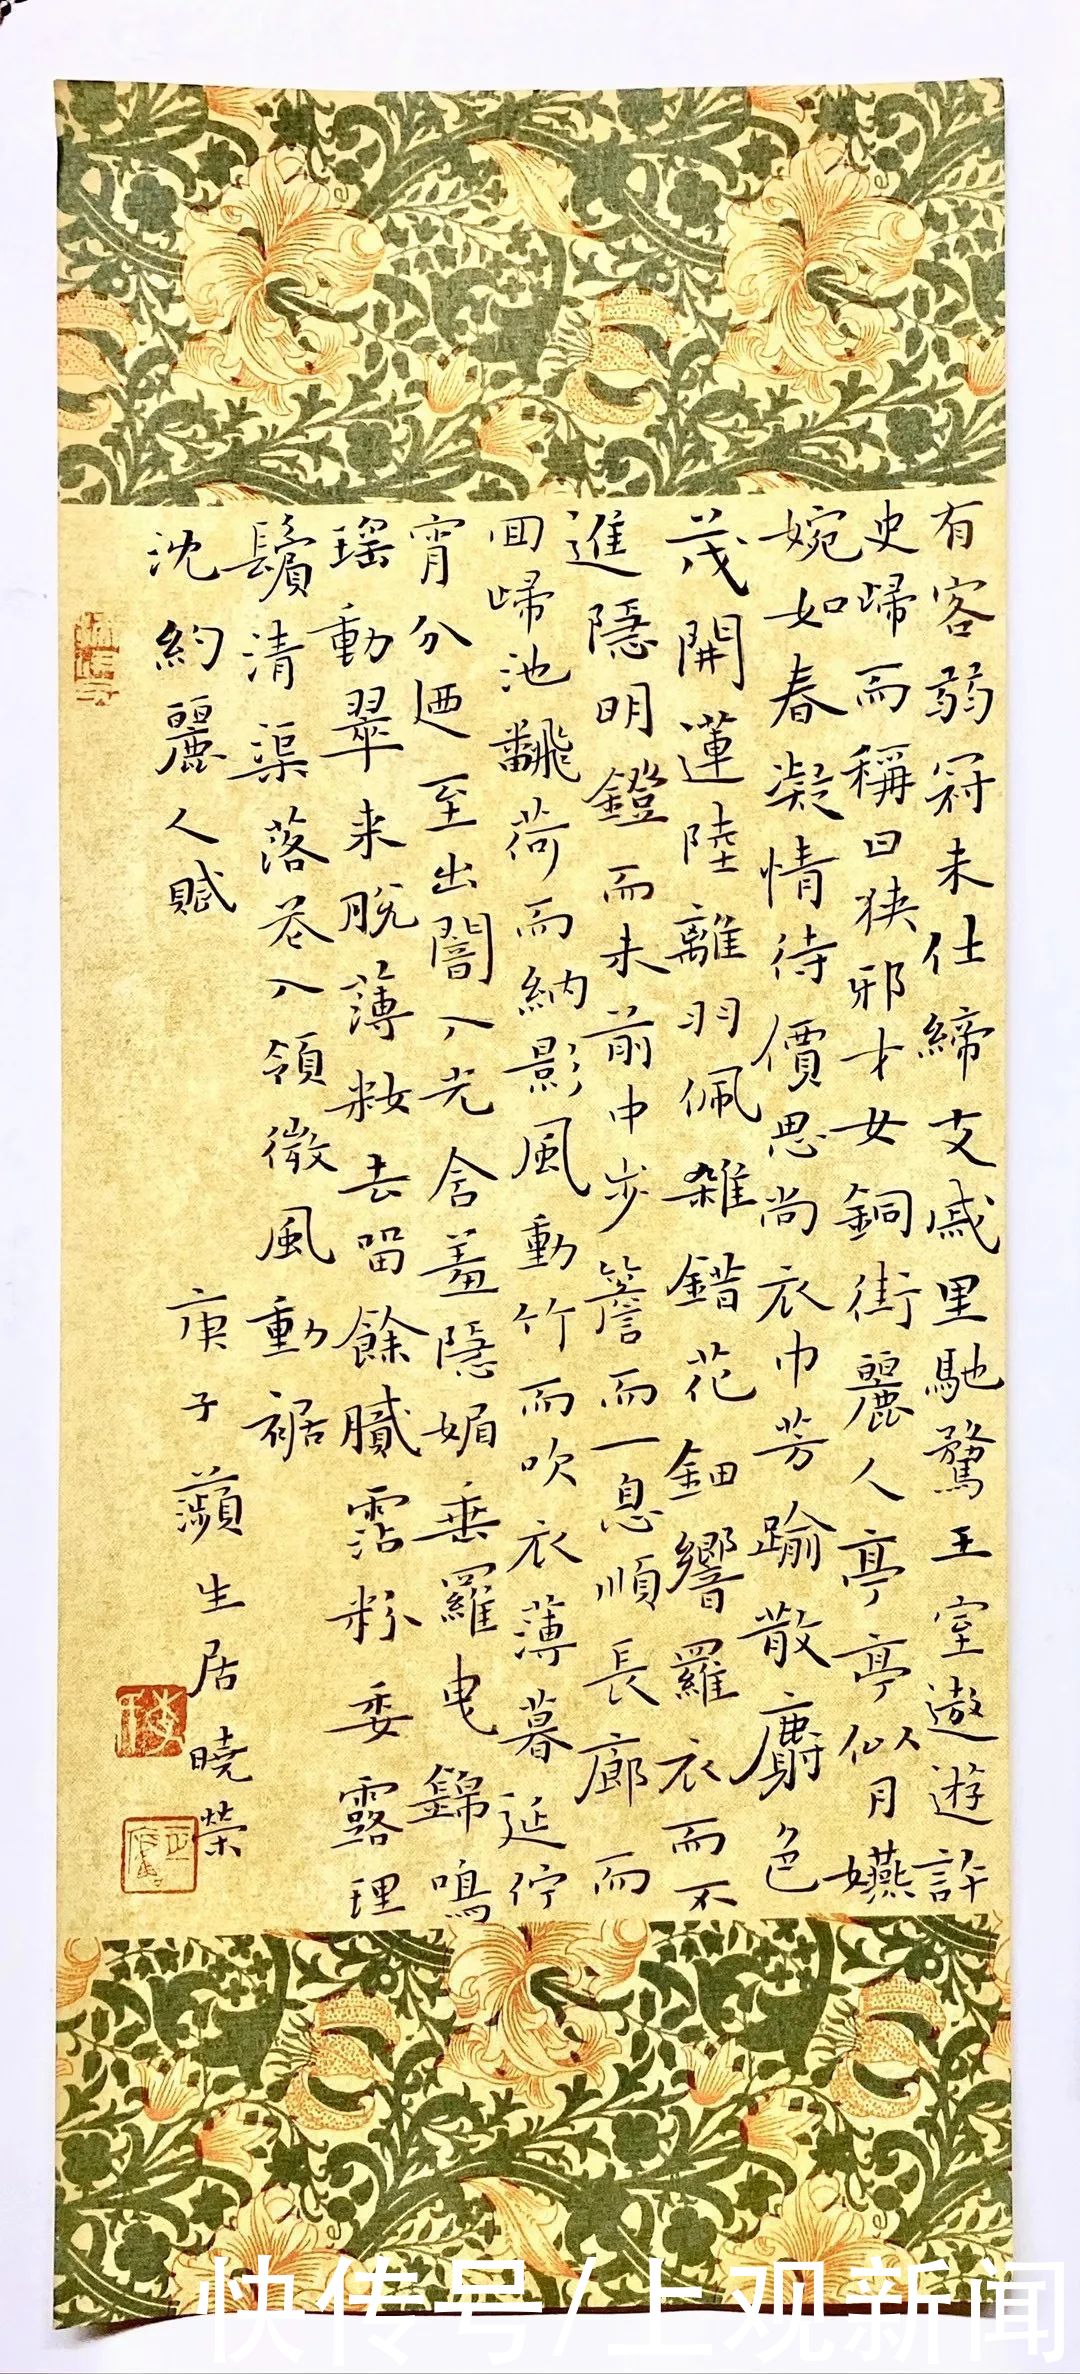 有客弱冠未仕締支戚里馳騖王室遨遊許
史歸而稱曰狹邪才女銅街麗人亭亭似月嬿
婉如春凝情待價思尚衣巾芳踰散麝色
茂開蓮陸離羽佩雜錯花鈿響羅衣而不
進隱明鐙而未前中步簷而一息順長廊而
回歸池翻荷而納影風動竹而吹衣薄暮延佇
宵分迺至出闇入光含羞隱媚垂羅曳錦鳴
瑤動翠来脫薄粧去留餘膩霑粉委露理
鬢清渠落花入領微風動裾
沈約麗人賦
庚子蘋生居曉榮
快传号/上观新闻